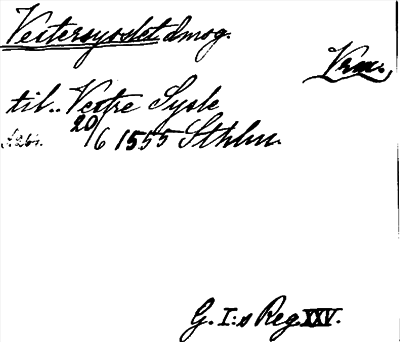 Vestersysslet dmog.
Vrm.
til.. Vestre Sysle
20/6 1555 Sthlm.
G. I:s Reg XXV.